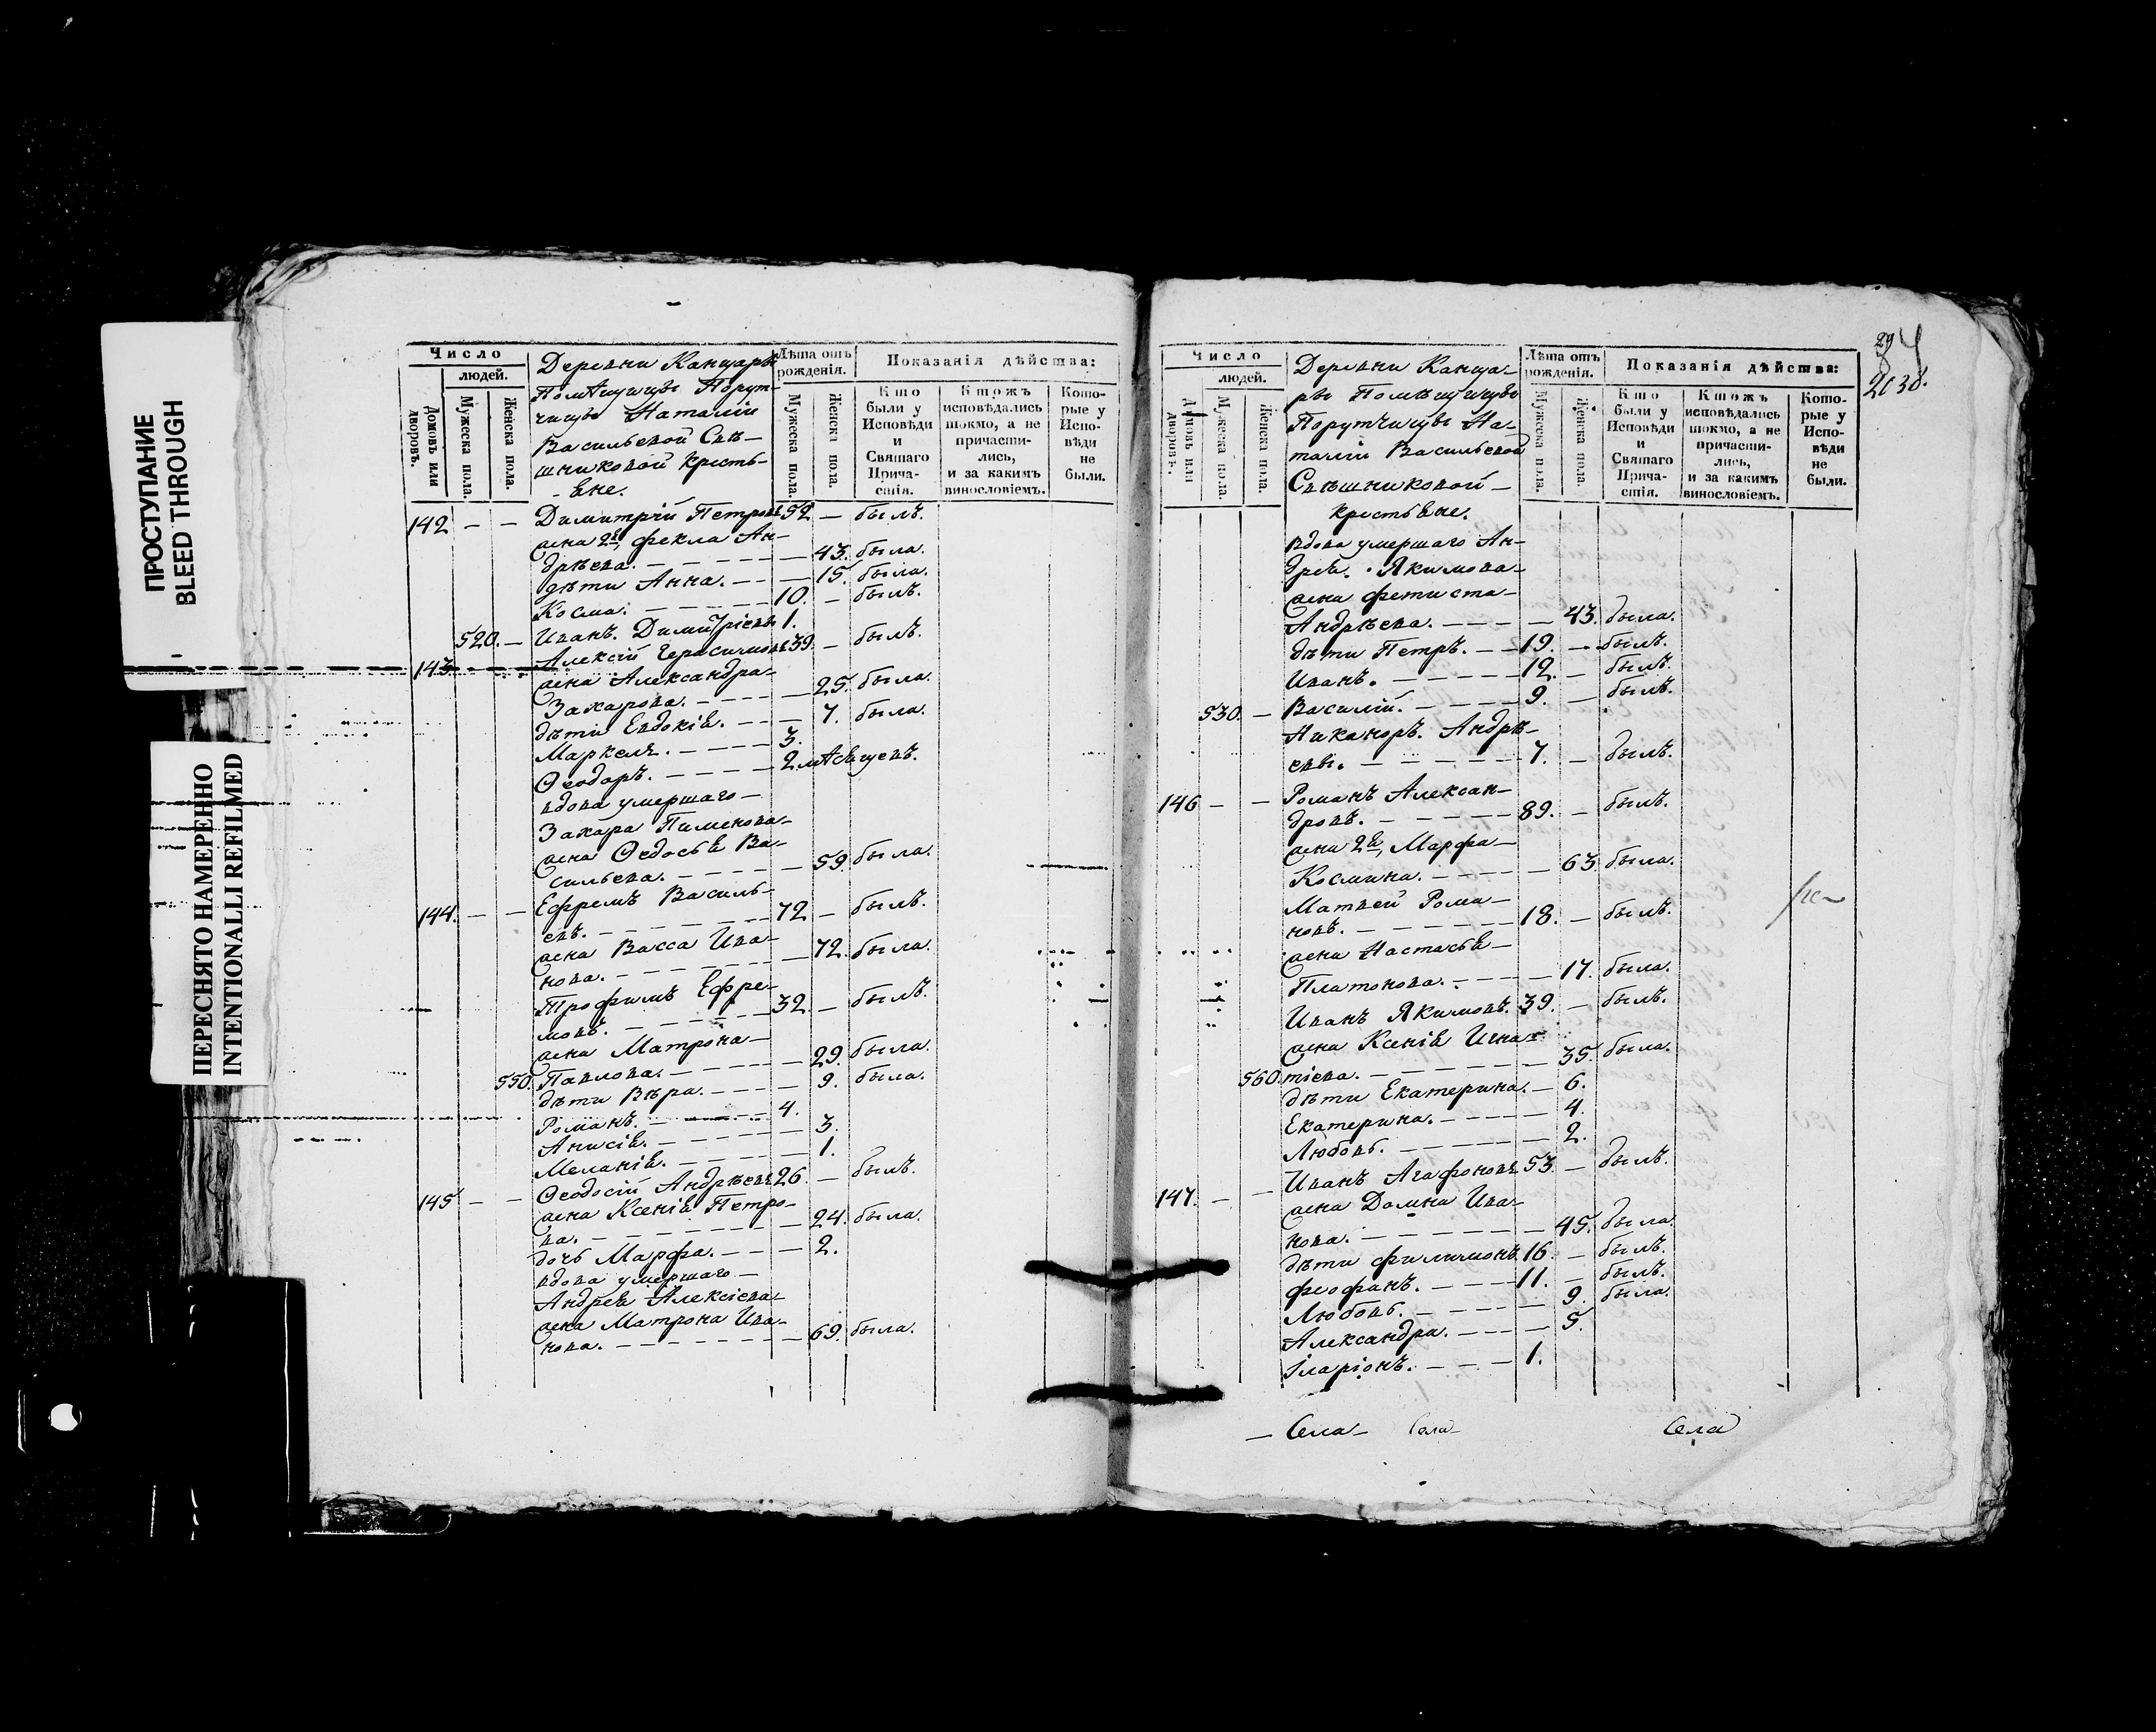 ПРОСТУПАНИЕ
BLEED THROUGH
ПЕРЕСНЯТО НАМЕРЕННО
INTENTIONALLI REFILMED
Число
людей.
Домовъ или дворовъ.
Мужеска пола.
Женска пола.
Деревни Канцары
Помѣщицы Порут-
чицы Наталіи
Васильевой Свѣ-
шниковой крестья-
-не.
Лѣта отъ рожденія.
Мужеска пола.
Женска пола.
Показанія дѣйства:
Кто были у Исповѣди и Святаго Прича-стія.
Ктожъ исповѣдались токмо, а не причасти-лись, и за какимъ винословіемъ.
Кото-рые у Испо-вѣди не были.
142 — — Димитрій Петровъ 52 — былъ.
жена 2я, Фекла Ан-
дрѣева. — 43. была.
дѣти Анна. — 15. была.
Косма. — 10. — былъ.
520. — Иванъ. Димитріевы 1.
143. Алексій Герасимовъ 39. — былъ.
жена Александра
Захарова. — 25. была.
дѣти Евдокія. — 7. была.
Маркелъ. — 3.
Ѳеодоръ. — 2 мѣсяцевъ.
вдова умершаго
Захара Пименова
жена Ѳедосья Ва-
сильева. — 59. была.
144. — — Ефремъ Василь-
евъ. — 72 — былъ.
жена Васса Ива-
нова. — 72. была.
Трофимъ Ефре-
мовъ. — 32. — былъ.
жена Матрона
550. Павлова. — 29. была.
дѣти Вѣра. — 9. была.
Романъ. — 4.
Анисія. — 3.
Меланія. — 1.
145 — — Ѳеодосій Андрѣевъ 26. — былъ.
жена Ксенія Петро-
ва. — 24. была.
дочь Марфа. — 2.
вдова умершаго
Андрея Алексіева
жена Матрона Ива-
нова. — 69. была.
29
203
Число
людей.
Домовъ или дворовъ.
Мужеска пола.
Женска пола.
Деревни Канца-
ры Помѣщицы
Порутчицы На-
таліи Васильевой
Свѣшниковой
крестьяне.
Лѣта отъ рожденія.
Мужеска пола.
Женска пола.
Показанія дѣйства:
Кто были у Исповѣди и Святаго Прича-стія.
Ктожъ исповѣдались токмо, а не причасти-лись, и за какимъ винословіемъ.
Кото-рые у Испо-вѣди не были.
вдова умершаго Ан-
дрея. Якимова
жена Фетиста
Андрѣева. — 43. была.
дѣти Петръ. — 19. — былъ.
Иванъ. — 12. — былъ.
530. — Василій. — 9. — былъ.
Никаноръ. Андрѣ-
евы. — 7. — былъ.
146 — — Романъ Алексан-
дровъ. — 89. — былъ.
жена 2я, Марфа
Космина. — 63. была.
Матвей Рома-
новъ. — 18. — былъ.
жена Настасья
Платонова. — 17. была.
Иванъ Якимовъ. 39. — былъ.
жена Ксенія Игна-
560. тіева. — 35. была.
дѣти Екатерина. — 6.
Екатерина. — 4.
Любовь. — 2.
147. — — Иванъ Агафоновъ 53. — былъ.
жена Домна Ива-
нова. — 45. была.
дѣти Филимонъ 16. — былъ.
Феофанъ. — 11. — былъ.
Любовь. — 9. была.
Александра. — 5.
Іларіонъ. — 1.
— Села — Села — Села